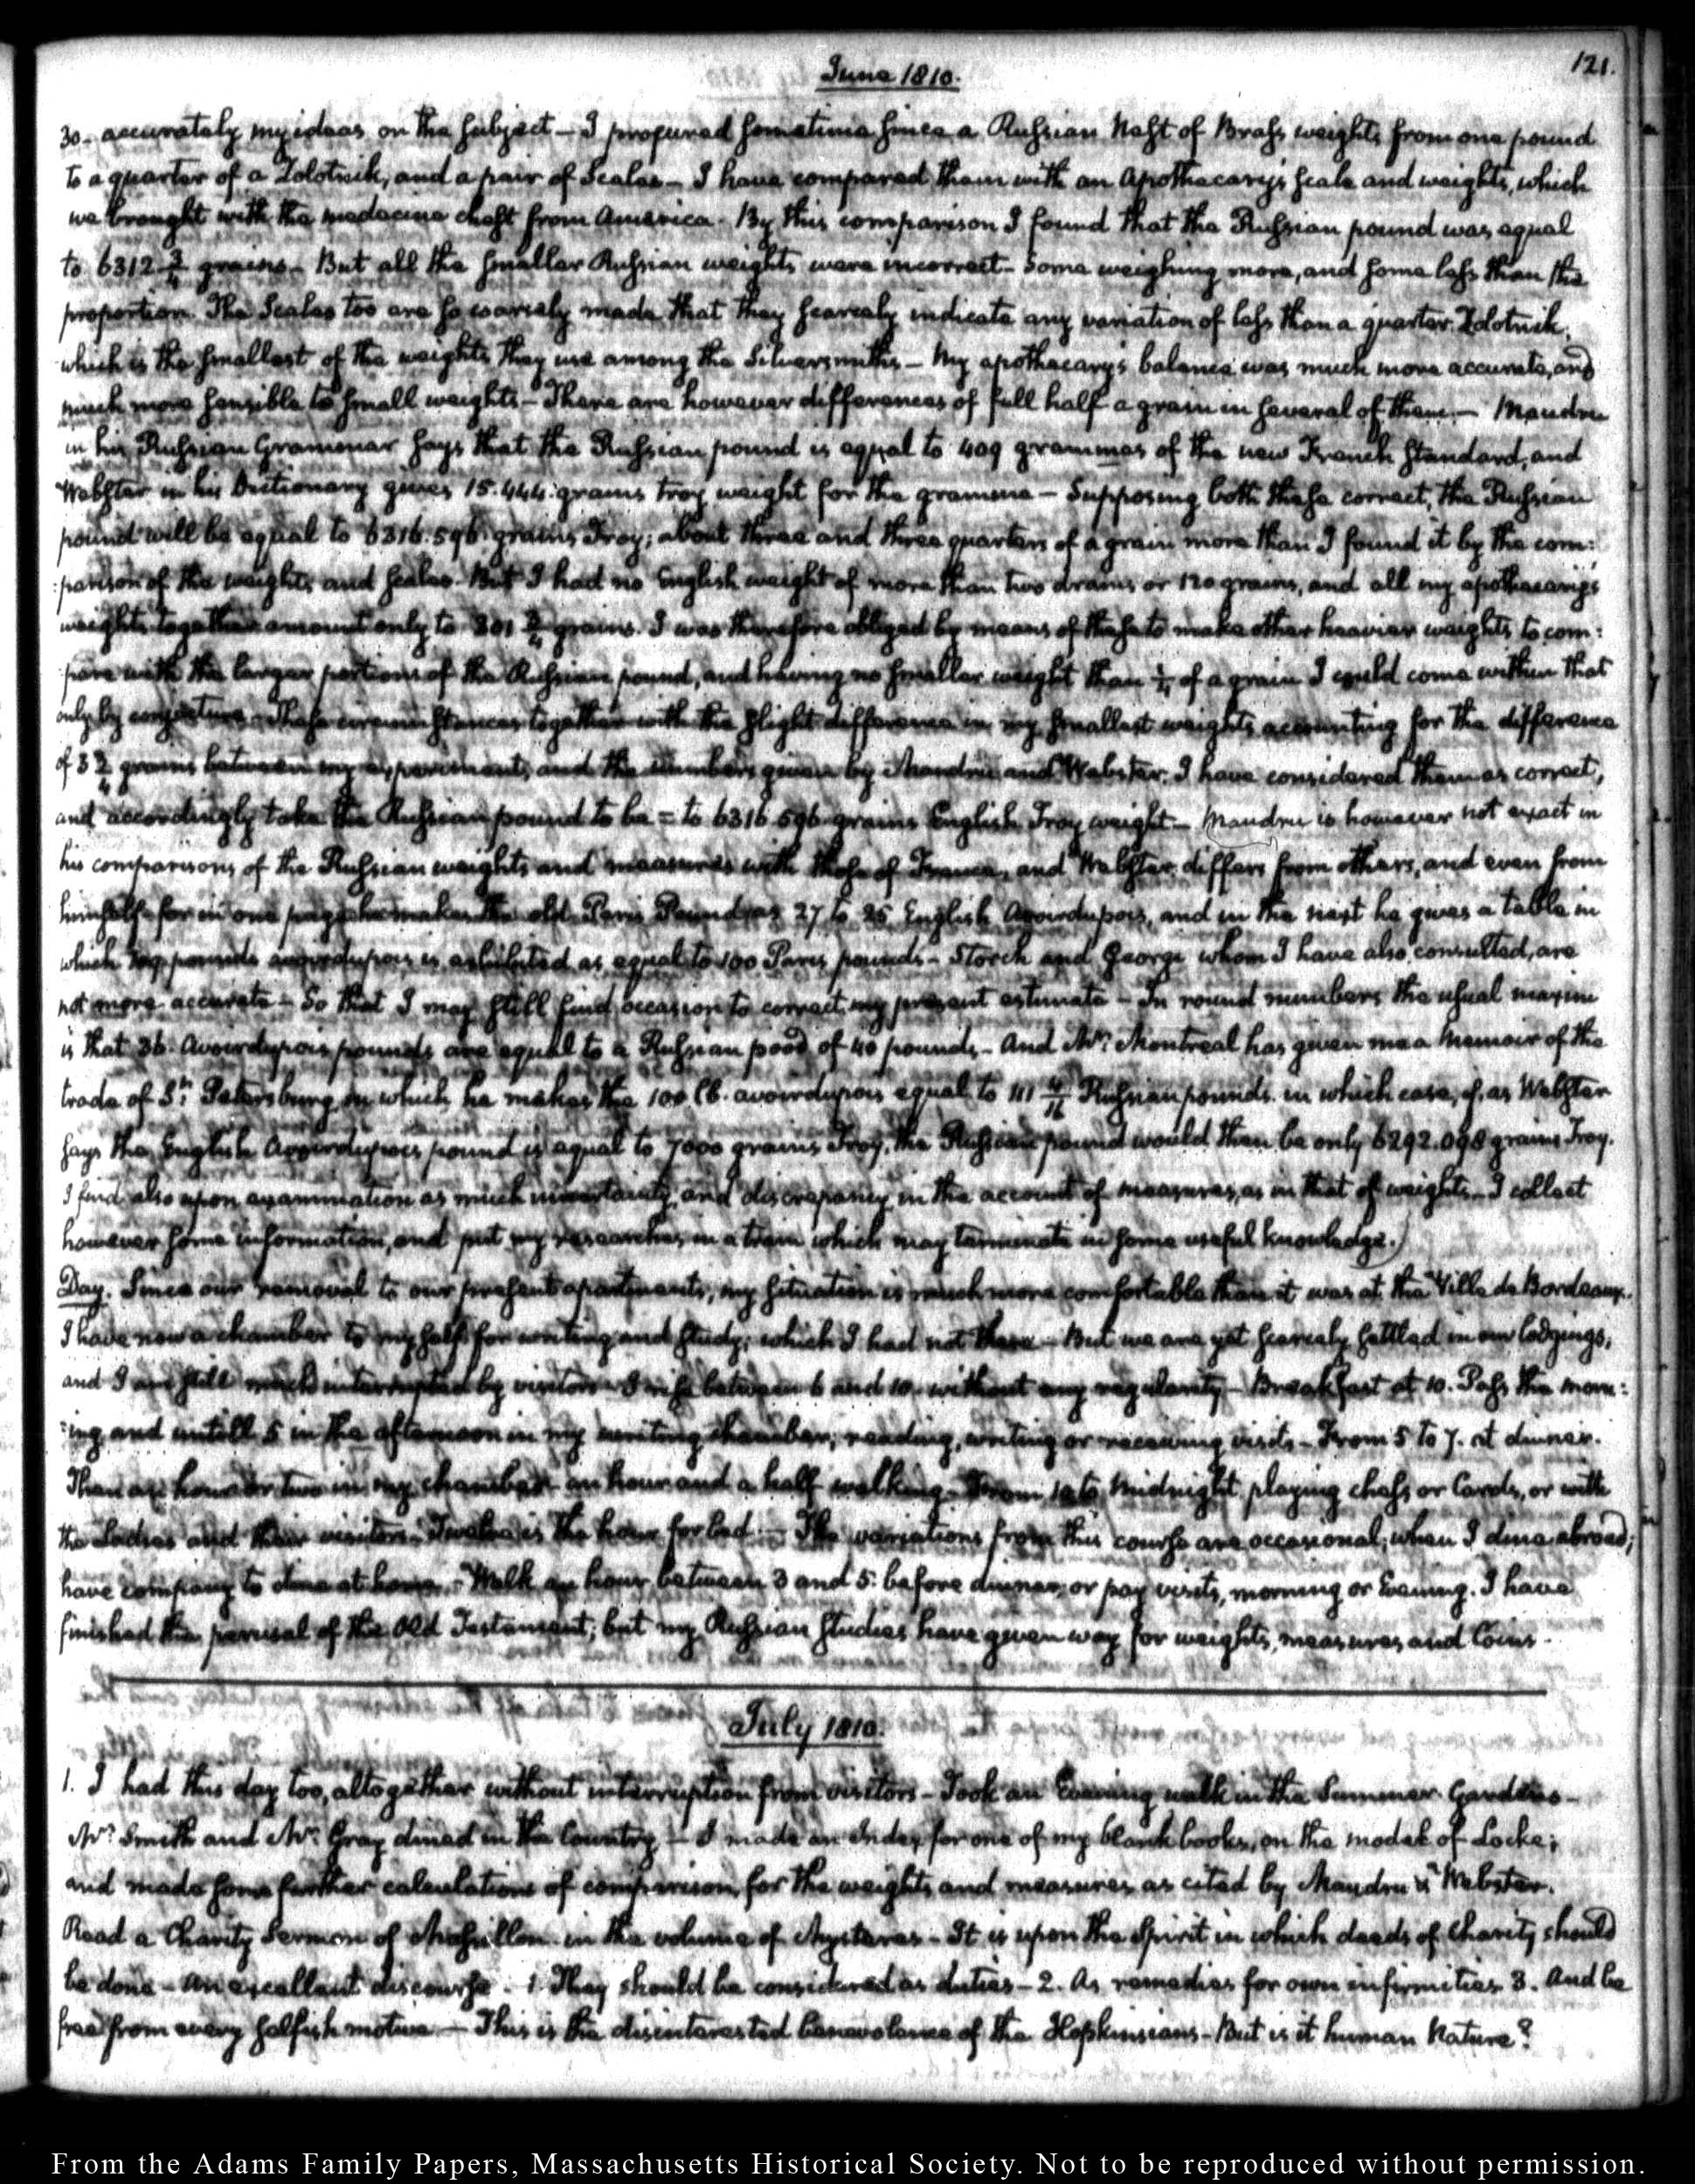 121.
June 1810.
30. accurately my ideas on the subject — I procured sometime since a Russian Nest of Brass weights from one pound
to a quarter of a Zolotnik, and a pair of Scales — I have compared them with an Apothecary's scale and weights, which
we brought with the medecine chest from America. By this comparison I found that the Russian pound was equal
to 6312 3/4 grains — But all the smaller Russian weights were incorrect — Some weighing more, and some less than the
proportion. The Scales too are so coarsely made that they scarcely indicate any variation of less than a quarter Zolotnik,
which is the smallest of the weights they use among the Silversmiths — My apothecary's balance was much more accurate, and
much more sensible to small weights — There are however differences of full half a grain in several of them. — Maudru
in his Russian Grammar says that the Russian pound is equal to 409 grammes of the new French Standard, and
Webster in his Dictionary gives 15.444 grains troy weight for the gramme — Supposing both these correct, the Russian
pound will be equal to 6316.596 grains Troy; about three and three quarters of a grain more than I found it by the com:
:parison of the weights and scales. But I had no English weight of more than two drams or 120 grains, and all my apothecary's
weights together amount only to 301 3/4 grains. I was therefore obliged by means of these to make other heavier weights to com:
:pare with the larger portions of the Russian pound, and having no smaller weight than 1/4 of a grain I could come within that
only by conjecture. These circumstances together with the slight difference in my smallest weights accounting for the difference
of 3 3/4 grains between my experiments, and the numbers given by Maudru and Webster, I have considered them as correct,
and accordingly take the Russian pound to be = to 6316.596 grains English Troy weight — Maudru is however not exact in
his comparisons of the Russian weights and measures with those of France, and Webster differs from others, and even from
himself — for in one page he makes the old Paris Pound as 27 to 25 English Avoirdupois, and in the next he gives a table in
which 109 pounds avoirdupois is exhibited as equal to 100 Paris pounds — Storch and Georgi whom I have also consulted, are
not more accurate — So that I may still find occasion to correct my present estimate — In round numbers the usual maxim
is that 36 Avoirdupois pounds are equal to a Russian pood of 40 pounds — And Mr. Montreal has given me a Memoir of the
trade of St. Petersburg in which he makes the 100 lb. avoirdupois equal to 111 4/16 Russian pounds in which case, if, as Webster
says the English Avoirdupois pound is equal to 7000 grains Troy, the Russian pound would then be only 6292.098 grains Troy.
I find also upon examination as much uncertainty and discrepancy in the account of measures, as in that of weights — I collect
however some information, and put my researches in a train which may terminate in some useful knowledge.)
Day. Since our removal to our present apartments, my situation is much more comfortable than it was at the Ville de Bordeaux.
I have now a chamber to myself for writing and study; which I had not there — But we are yet scarcely settled in our lodgings,
and I am still much interrupted by visitors — I rise between 6 and 10. without any regularity — Breakfast at 10. Pass the morn:
:ing and untill 5 in the afternoon in my writing chamber, reading, writing or receiving visits — From 5 to 7. at dinner.
Then an hour or two in my chamber — an hour and a half walking — From 10 to Midnight playing chess or Cards, or with
the Ladies and their visitors — Twelve is the hour for bed. — The variations from this course are occasional; when I dine abroad;
have company to dine at home. — Walk an hour between 3 and 5. before dinner, or pay visits, morning or Evening. I have
finished the perusal of the Old Testament; but my Russian Studies have given way for weights, measures and Coins.
July 1810.
1. I had this day too, altogether without interruption from visitors — Took an Evening walk in the Summer Gardens —
Mr. Smith and Mr. Gray dined in the Country — I made an Index for one of my blank books, on the model of Locke;
and made some further calculations of comparison, for the weights and measures as cited by Maudru & Webster.
Read a Charity Sermon of Massillon in the volume of Mysteres — It is upon the Spirit in which deeds of Charity should
be done — an excellent discourse. 1. They should be considered as duties — 2. As remedies for own infirmities 3. And be
free from every selfish motive. — This is the disinterested benevolence of the Hopkinsians — But is it human Nature?
From the Adams Family Papers, Massachusetts Historical Society. Not to be reproduced without permission.